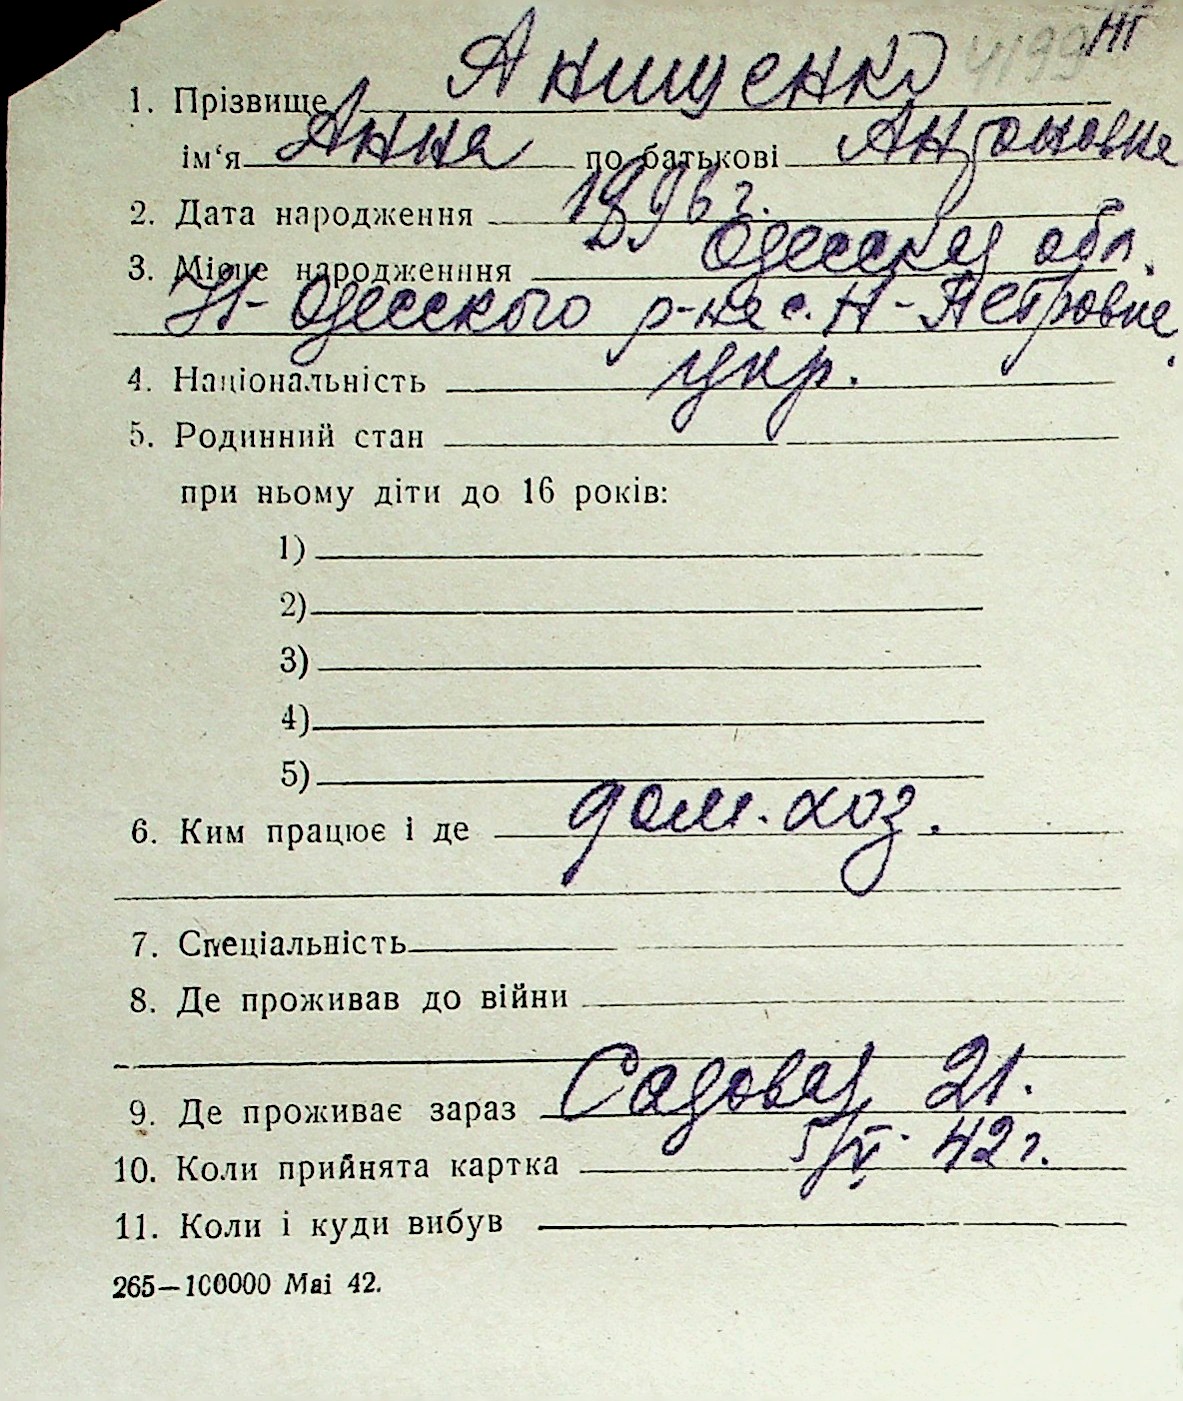 4199 НГ
1. Прізвище Анищенко
ім‘я Анна по батькові Антоновна
2. Дата народження 1896 г.
3. Місце народженння Одесская обл.
Н-Одесского р-на с. Н-Петровка
4. Національність укр.
5. Родинний стан
при ньому діти до 16 років:
1)
2)
3)
4)
5)
6. Ким працює і де дом. хоз.
7. Спеціальність
8. Де проживав до війни
9. Де проживає зараз Садовая 21.
10. Коли прийнята картка 5/V. 42 г.
11. Коли і куди вибув
265—100000 Mai 42.